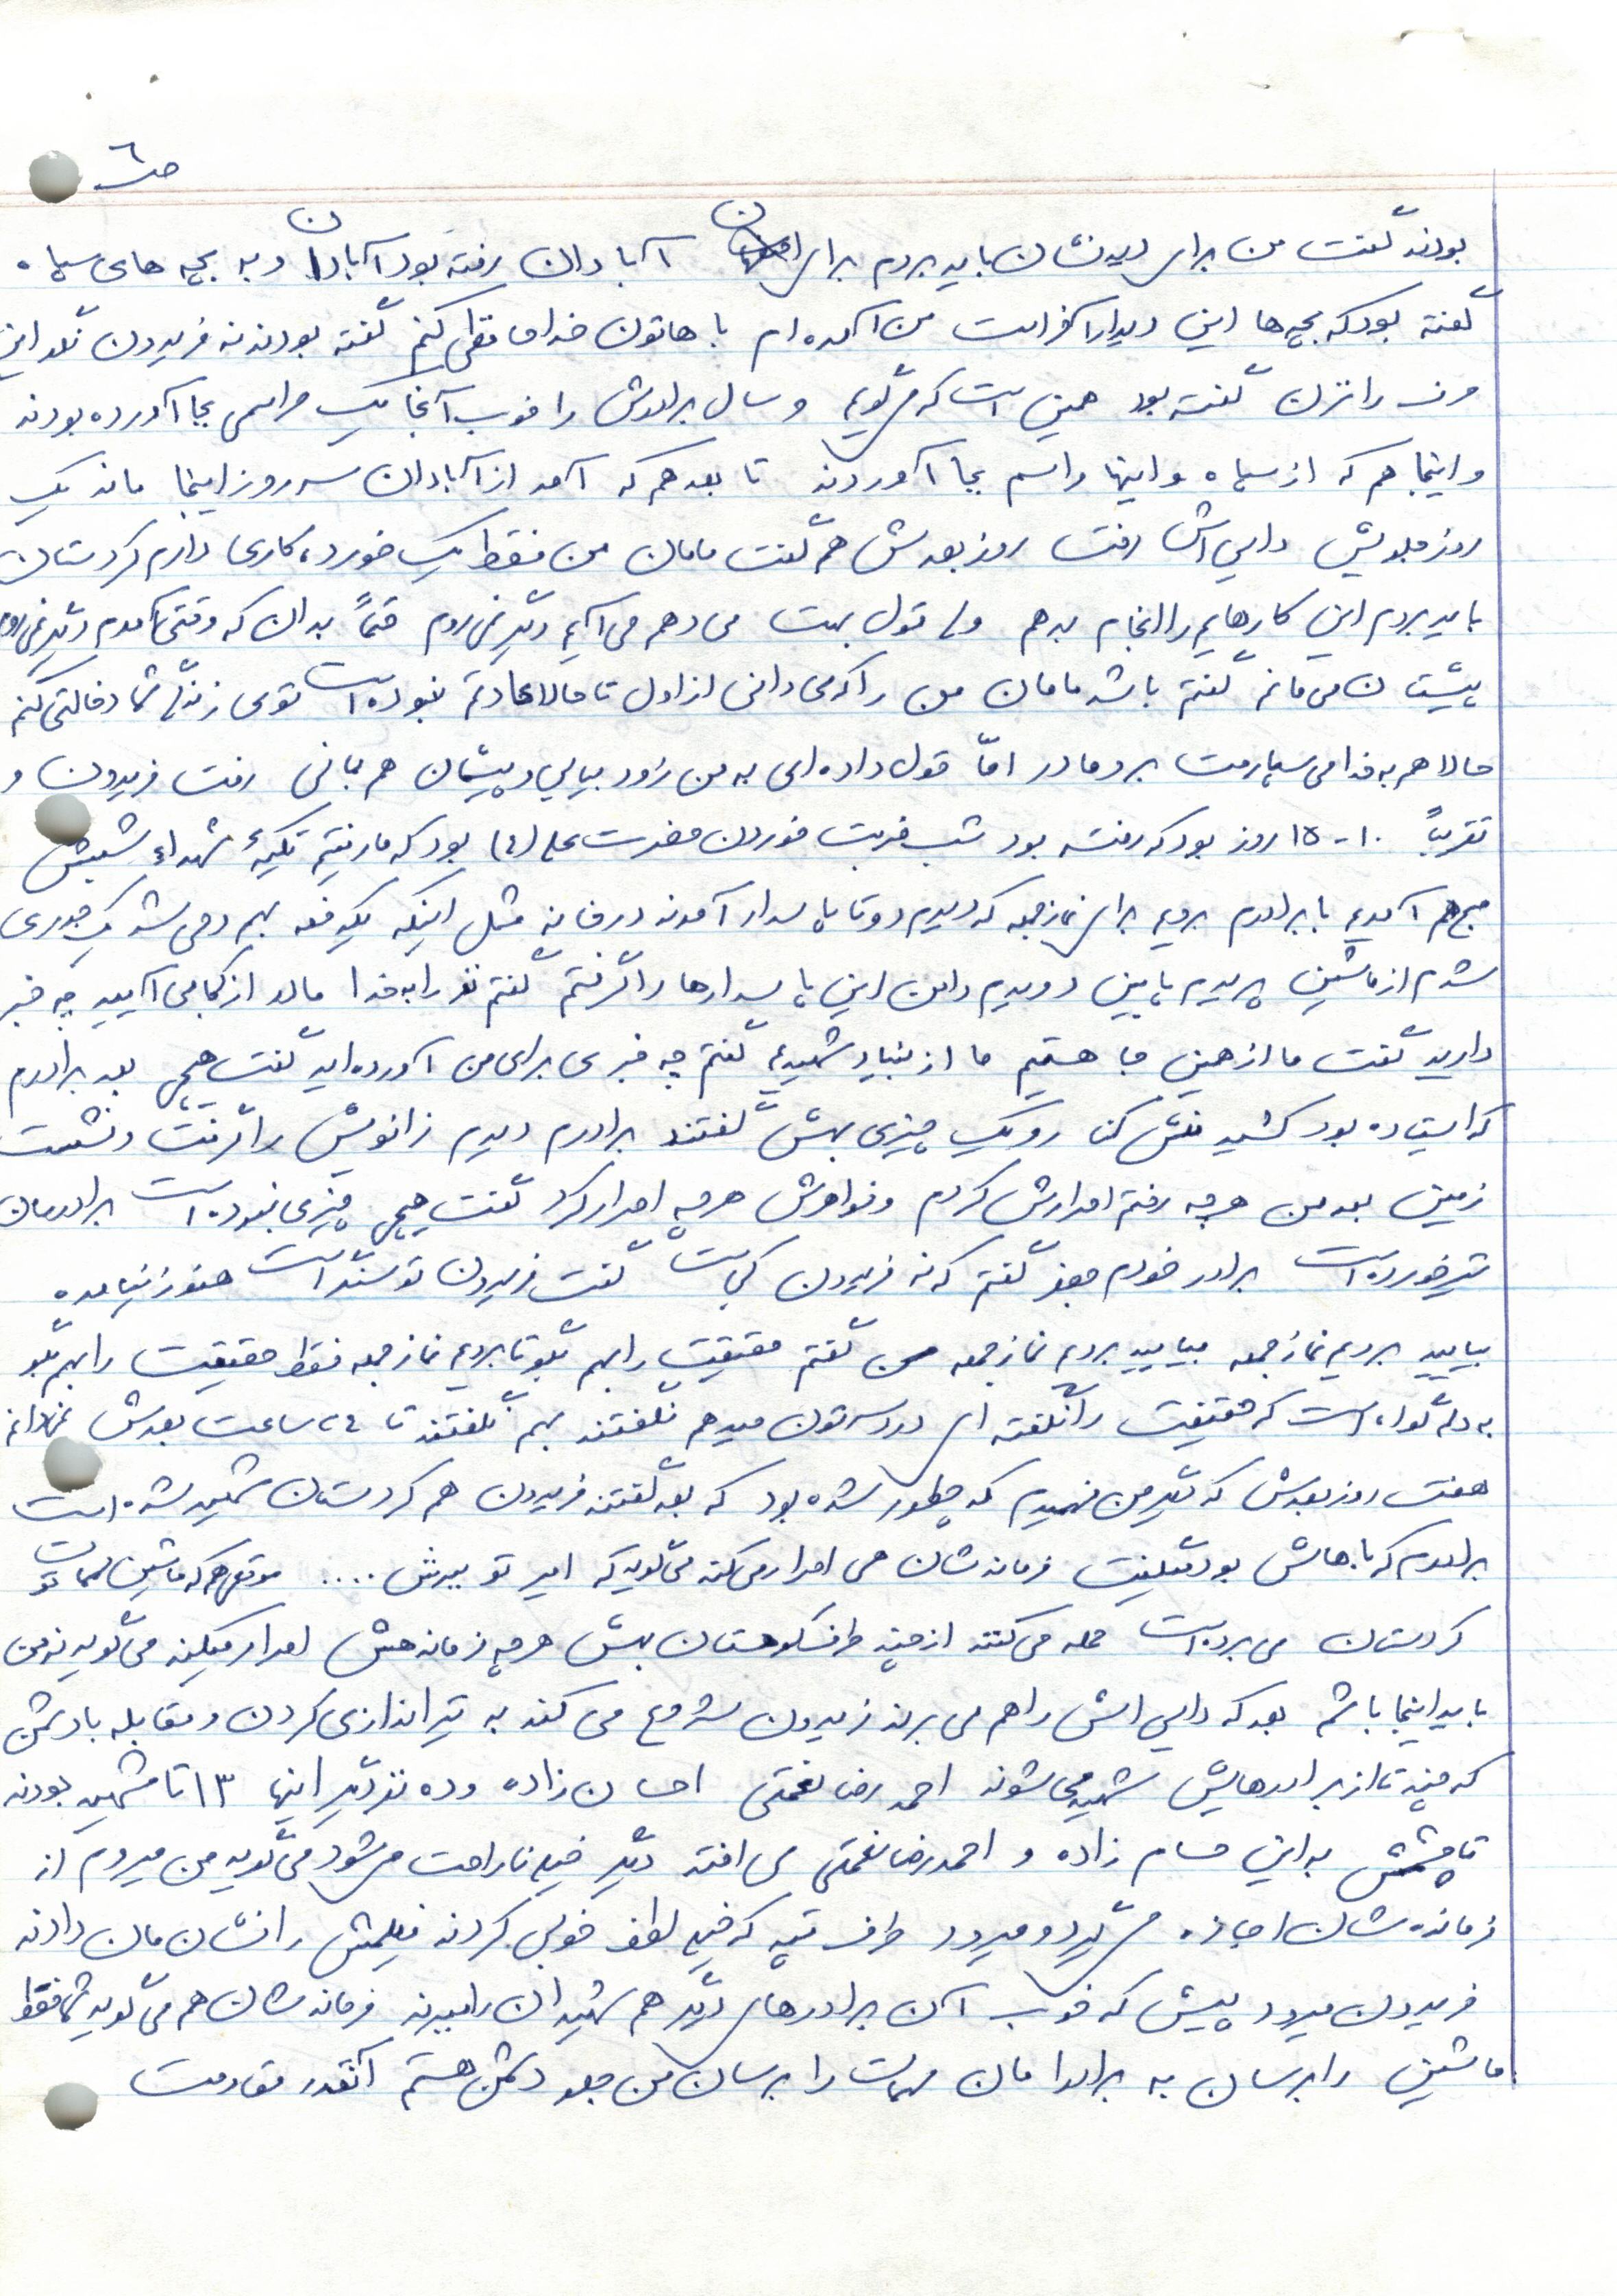 ص ٦
بودند گفت من برای دیدنشان باید بروم برای آبادان رفته بود آبادان و به بچه های سپاه
گفته بود که بچه ها این دیدار آخر است من آمده ام باهاتون خداحافظی کنم گفته بودند نه فریدون نگو این
حرف را نزن گفته بود همین است که می گویم و سال برادرش را خوب آنجا یک مراسمی بجا آورده بودند
و اینجا هم که از سپاه و اینها مراسم بجا آوردند تا بعد هم که آمد از آبادان سه روز اینجا ماند یک
روز جلویش دایی اش رفت روز بعدش هم گفت مامان من فقط یک خورده کاری دارم کردستان
باید بروم این کارهایم را انجام بدهم ولی قول بهت می دهم می آیم دیگر نمی روم حتماً بدان که وقتی آمدم دیگر نمی روم
پیشتان می مانم گفتم باشه مامان من را که می دانی از اول تا حالا عادتم نبوده است توی زندگی شما دخالتی کنم
حالا هم به خدا می سپارمت برو مادر امّا قول داده ای به من زود بیایی و پیشمان هم بمانی رفت فریدون و
تقریباً ١٠ - ١٥ روز بود که رفته بود شب ضربت خوردن حضرت علی (ع) بود که ما رفتیم تکیهٔ شهداء شبش
صبح هم آمدیم با برادرم برویم برای نماز جمعه که دیدم دو تا پاسدار آمدند در خانه مثل اینکه یکدفعه بهم وحی شد یک جوری
شدم از ماشین پریدم پایین دویدم دامن این پاسدارها را گرفتم گفتم تو را به خدا مادر از کجا می آیید چه خبر
دارید گفت ما از همین جا هستیم ما از بنیاد شهیدیم گفتم چه خبری برای من آورده اید گفت هیچی بعد برادرم
که ایستاده بود کشید کنار و یک چیزی بهش گفتند برادرم دیدم زانویش را گرفت و نشست
زمین بعد من هر چه رفتم اصرارش کردم و خواهرش هر چه اصرار کرد گفت هیچی چیزی نبوده است برادرمان
تیر خورده است برادر خودم جعفر گفتم که نه فریدون کجاست گفت فریدون تو سنگر است هنوز نیامده
بیایید برویم نماز جمعه بیایید برویم نماز جمعه من گفتم حقیقت را بهم بگو تا برویم نماز جمعه فقط حقیقت را بهم بگو
به دلم گواه است که حقیقت را نگفته ای دردسرتون میدهم نگفتند بهم نگفتند تا ٢٤ ساعت بعدش نمی دانم
هفت روز بعدش که دیگر من فهمیدم که چطور شده بود که بعد گفتند فریدون هم کردستان شهید شده است
برادرم که باهاش بود میگفت فرمانده شان هی اصرار می کند می گوید که امیر تو ببرش .... موقعی هم که ماشین مهمات تو
کردستان می برده است حمله می کنند از چند طرف کوهستان بهش هر چه فرماندهش اصرار میکند می گوید نه من
باید اینجا باشم بعد که دایی اش را هم می برند فریدون شروع می کند به تیراندازی کردن و مقابله با دشمن
که چند تا از برادرهایش شهید می شوند احمد رضا نعمتی احسان زاده و ده نفر دیگر اینها ١٣ تا شهید بودند
تا چشمش به این حسام زاده و احمدرضا نعمتی می افتد دیگر خیلی ناراحت می شود می گوید من میروم از
فرمانده شان اجازه می گیرد و میرود طرف تپه که خیلی لطف خوبی کردند فیلمش را نشانمان دادند
فریدون میرود پیش که خوب آن برادرهای دیگر هم شهیدان را ببرند فرمانده شان هم می گوید شما فقط
ماشین را برسان به برادرامان مهمات را برسان من جلو دشمن هستم آنقدر مقاومت